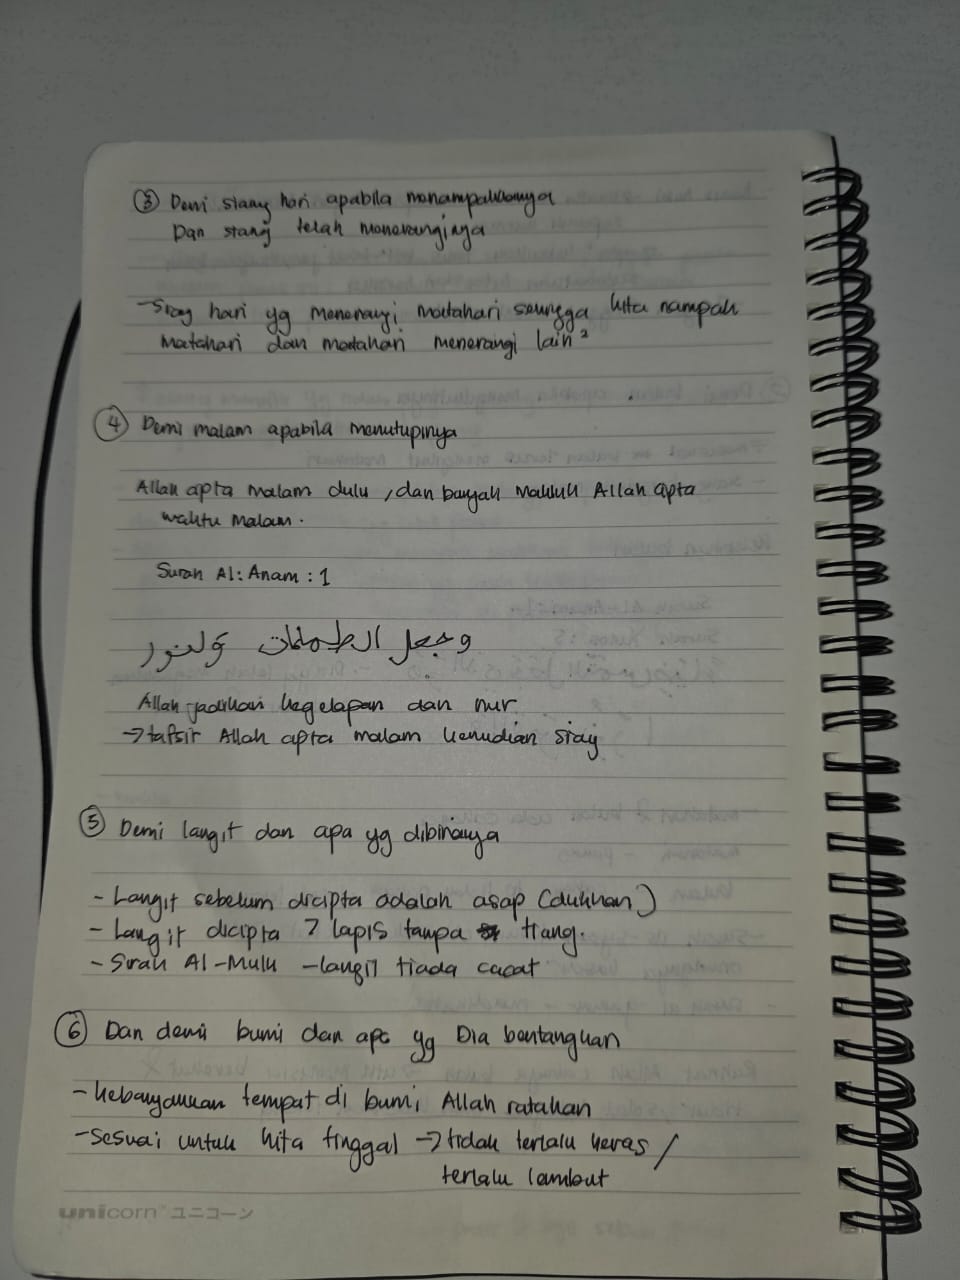 ③ Demi siang hari apabila menampakkanya
Dan siang telah meneranginya
- Siang hari yg menerangi matahari sehingga kita nampak
matahari dan matahari menerangi lain²
④ Demi malam apabila menutupinya
Allah cipta malam dulu, dan banyak makluk Allah cipta
waktu malam.
Surah Al: Anam : 1
وجعل الظلمات ولنور
Allah jadikan kegelapan dan nur
→ tafsir Allah cipta malam kemudian siang
⑤ Demi langit dan apa yg dibinanya
- Langit sebelum dicipta adalah asap (dukhan)
- Langit dicipta 7 lapis tanpa tiang.
- Surah Al-Mulk - langit tiada cacat
⑥ Dan demi bumi dan apa yg Dia bentangkan
- kebanyakkan tempat di bumi, Allah ratakan
- Sesuai untuk kita tinggal → tidak terlalu keras /
terlalu lembut
unicorn ユニコーン